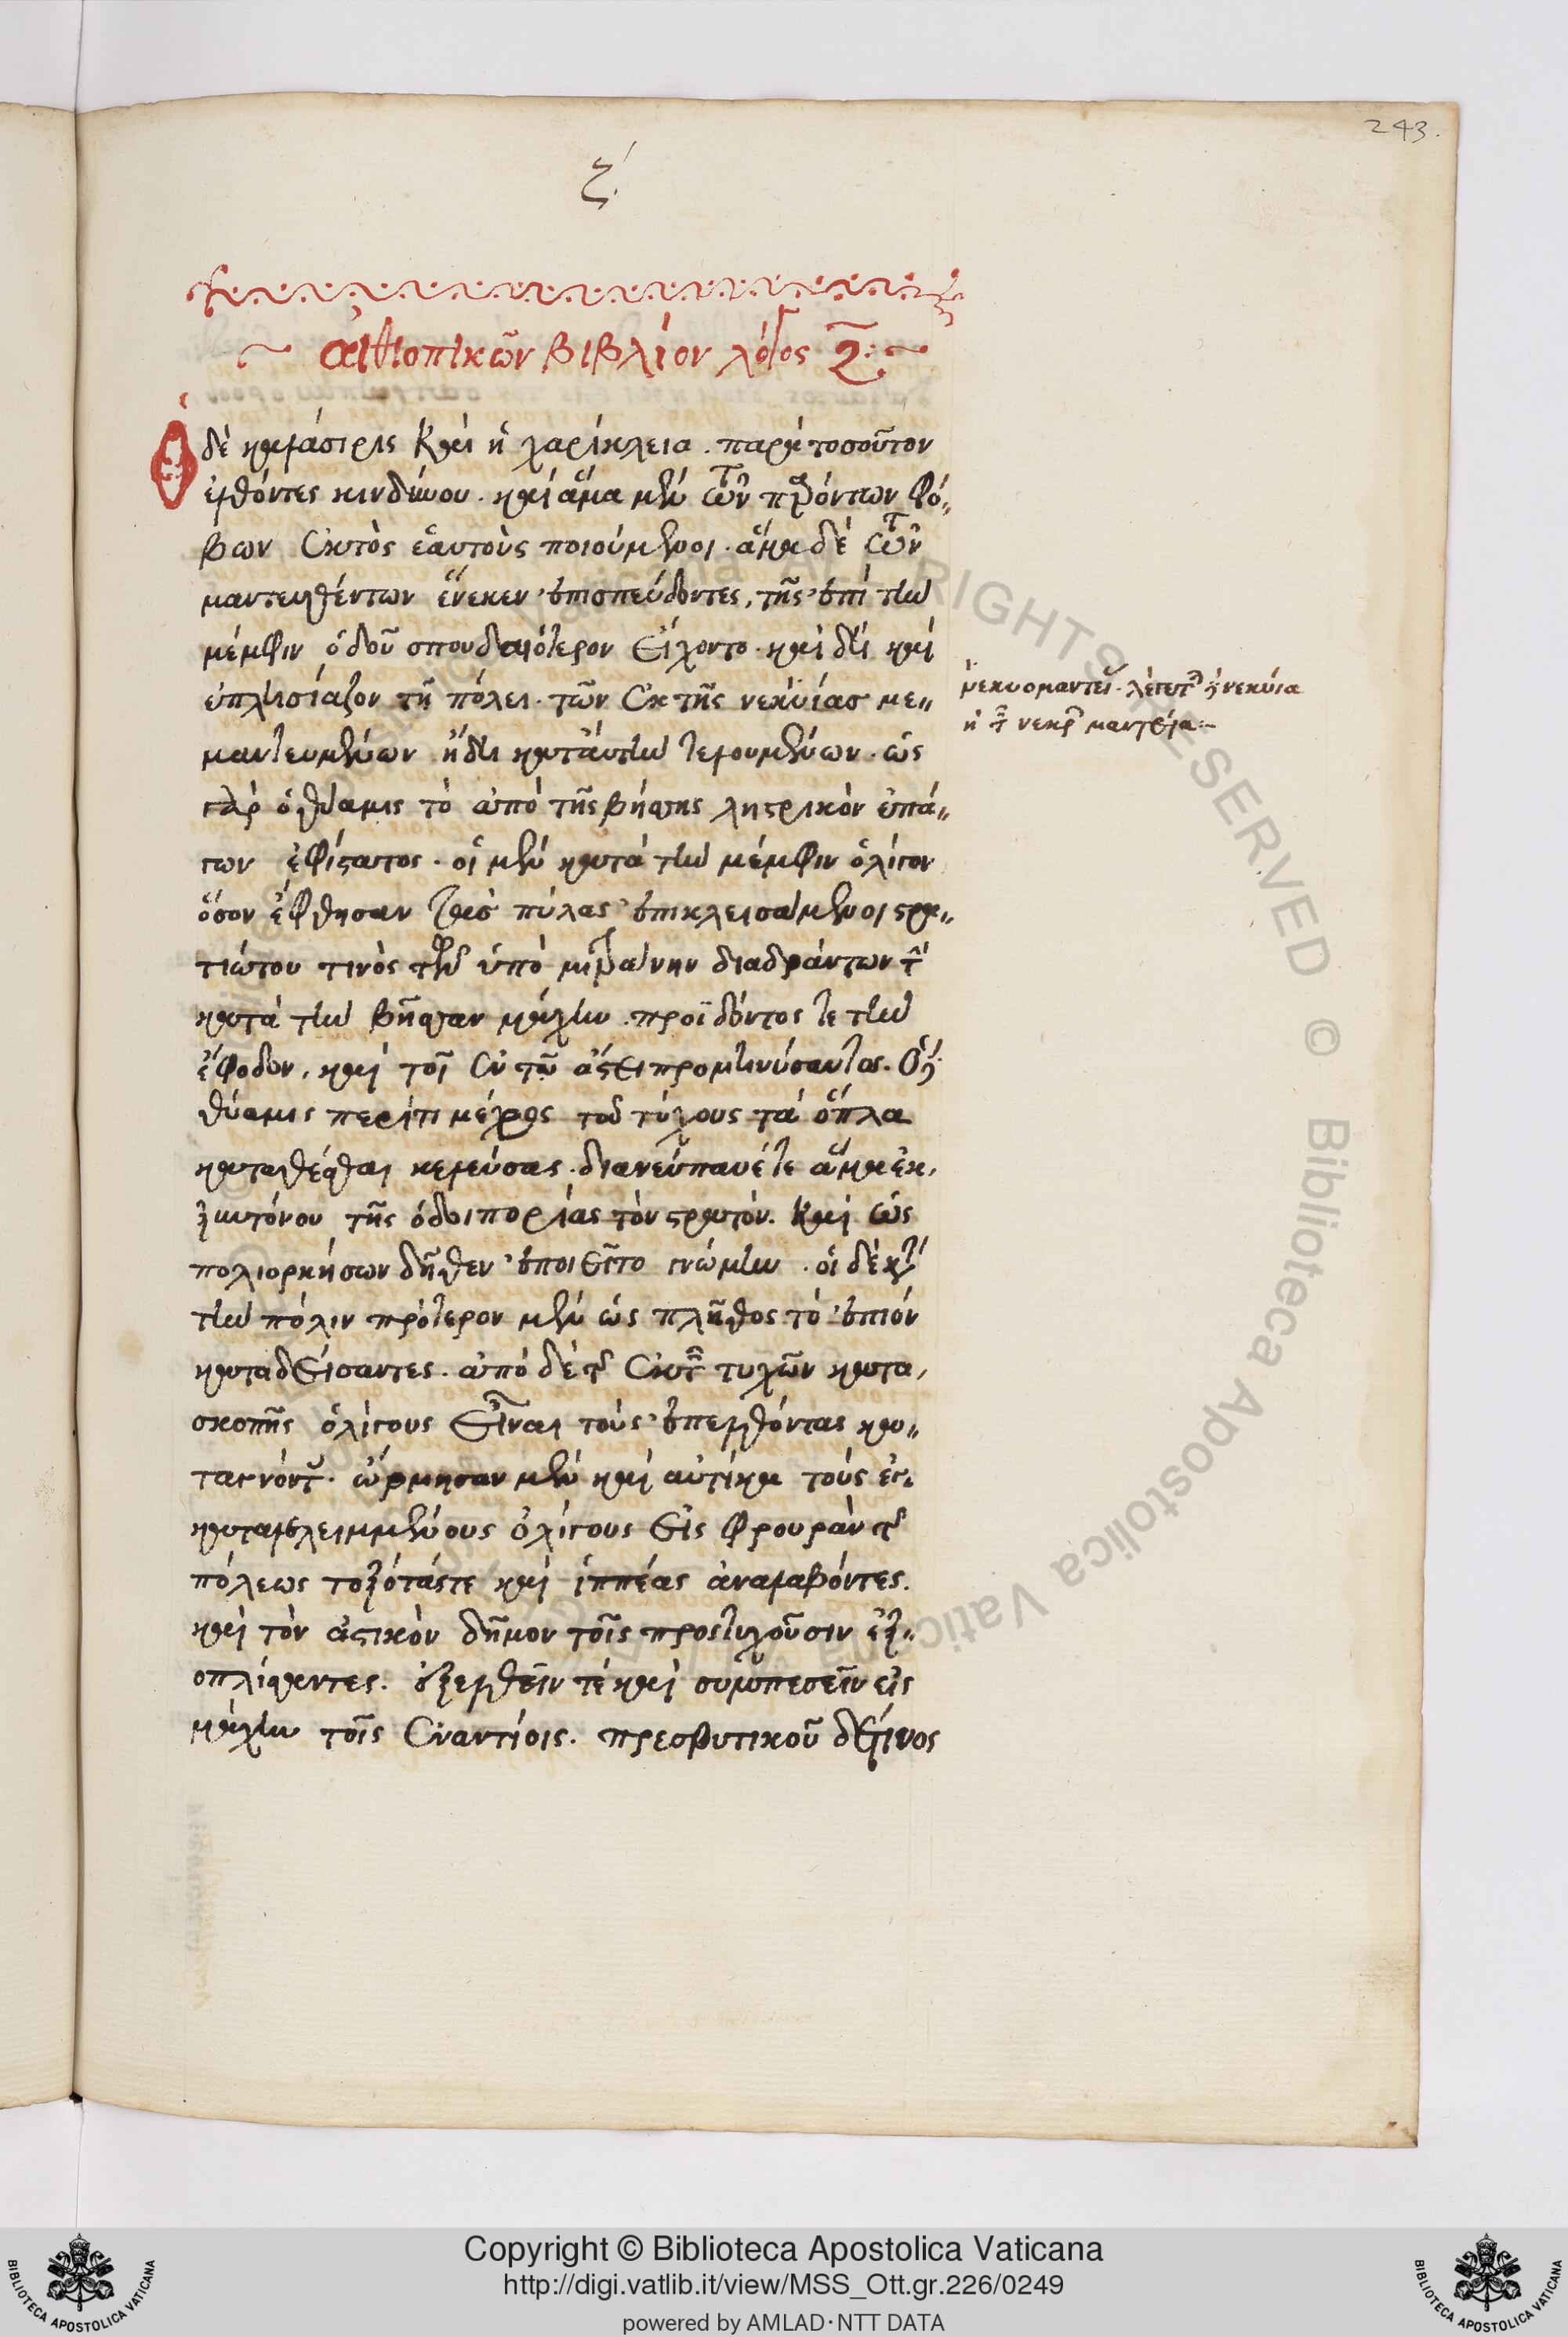 243.
ζ´.
αἰθιοπικῶν βιβλίον λόγος ζ:~
Ὁ δὲ καλάσιρις καὶ ἡ χαρίκλεια. παρὰ τοσοῦτον
ἐλθόντες κινδύνου. καὶ ἅμα μὲν τῶν παρόντων φό-
βων ἐκτὸς ἑαυτοὺς ποιούμενοι. ἅμα δὲ τῶν
μαντευθέντων ἕνεκεν ἐπισπεύδοντες, τῆς ἐπὶ τὴν
μέμφιν ὁδοῦ σπουδαιότερον εἴχοντο. καὶ δὴ καὶ
ἐπλησίαζον τῇ πόλει. τῶν ἐκ τῆς νεκυίας με-
μαντευμένων ἤδη κατ' αὐτὴν τελουμένων. ὡς
γὰρ ὁ θύαμις τὸ ἀπὸ τῆς βήσης λῃστρικὸν ἐπά-
γων ἐφίστατο. οἱ μὲν κατὰ τὴν μέμφιν ὀλίγον
ὅσον ἔφθησαν τὰς πύλας ἐπικλεισάμενοι στρα-
τιώτου τινὸς τῶν ὑπὸ μιτράνην διαδράντων τὴν
κατὰ τὴν βῆσσαν μάχην. προϊδόντος τε τὴν
ἔφοδον, καὶ τοῖς ἐν τῷ ἄστει προμηνύσαντος. ὁ δὲ
θύαμις περί τι μέρος τοῦ τείχους τὰ ὅπλα
καταθέσθαι κελεύσας. διανέπαυέ τε ἅμα ἐκ
συντόνου τῆς ὁδοιπορίας τὸν στρατόν. καὶ ὡς
πολιορκήσων δῆθεν ἐποιεῖτο γνώμην. οἱ δὲ κατὰ
τὴν πόλιν πρότερον μὲν ὡς πλῆθος τὸ ἐπιὸν
καταδείσαντες. ἀπὸ δὲ τῆς ἐκ τῶν τειχῶν κατα-
σκοπῆς ὀλίγους εἶναι τοὺς ἐπελθόντας κα-
ταγνόντες. ὥρμησαν μὲν καὶ αὐτίκα τοὺς ἐγ-
καταλελειμμένους ὀλίγους εἰς φρουρὰν τῆς
πόλεως τοξότας τε καὶ ἱππέας ἀναλαβόντες.
καὶ τὸν ἀστικὸν δῆμον τοῖς προστυχοῦσιν ἐξ-
οπλίσαντες. ἐξελθεῖν τε καὶ συμπεσεῖν εἰς
μάχην τοῖς ἐναντίοις. πρεσβυτικοῦ δέ τινος
νεκυομαντεία. λέγεται ἡ νεκυία
ἡ τῶν νεκρῶν μαντεία:-
Copyright © Biblioteca Apostolica Vaticana
http://digi.vatlib.it/view/MSS_Ott.gr.226/0249
powered by AMLAD·NTT DATA